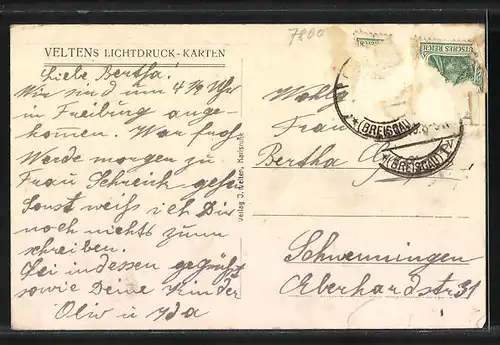 7800
VELTENS LICHTDRUCK-KARTEN
Liebe Bertha!
Wir sind um 4 ½ Uhr
in Freiburg ange-
kommen. War froh
Werde morgen zu
Frau Schreich gehen
Sonst weiss ich Dir
noch nichts zum
schreiben.
Sei indessen gegrüßt
sowie Deine Kinder
Oliv u Ida
Verlag J. Velten, Karlsruhe
DEUTSCHES REICH
(BREISGAU)
*(BREISGAU)1v
Wohlg
Frau
Bertha
Schwenningen
Eberhardstr 31